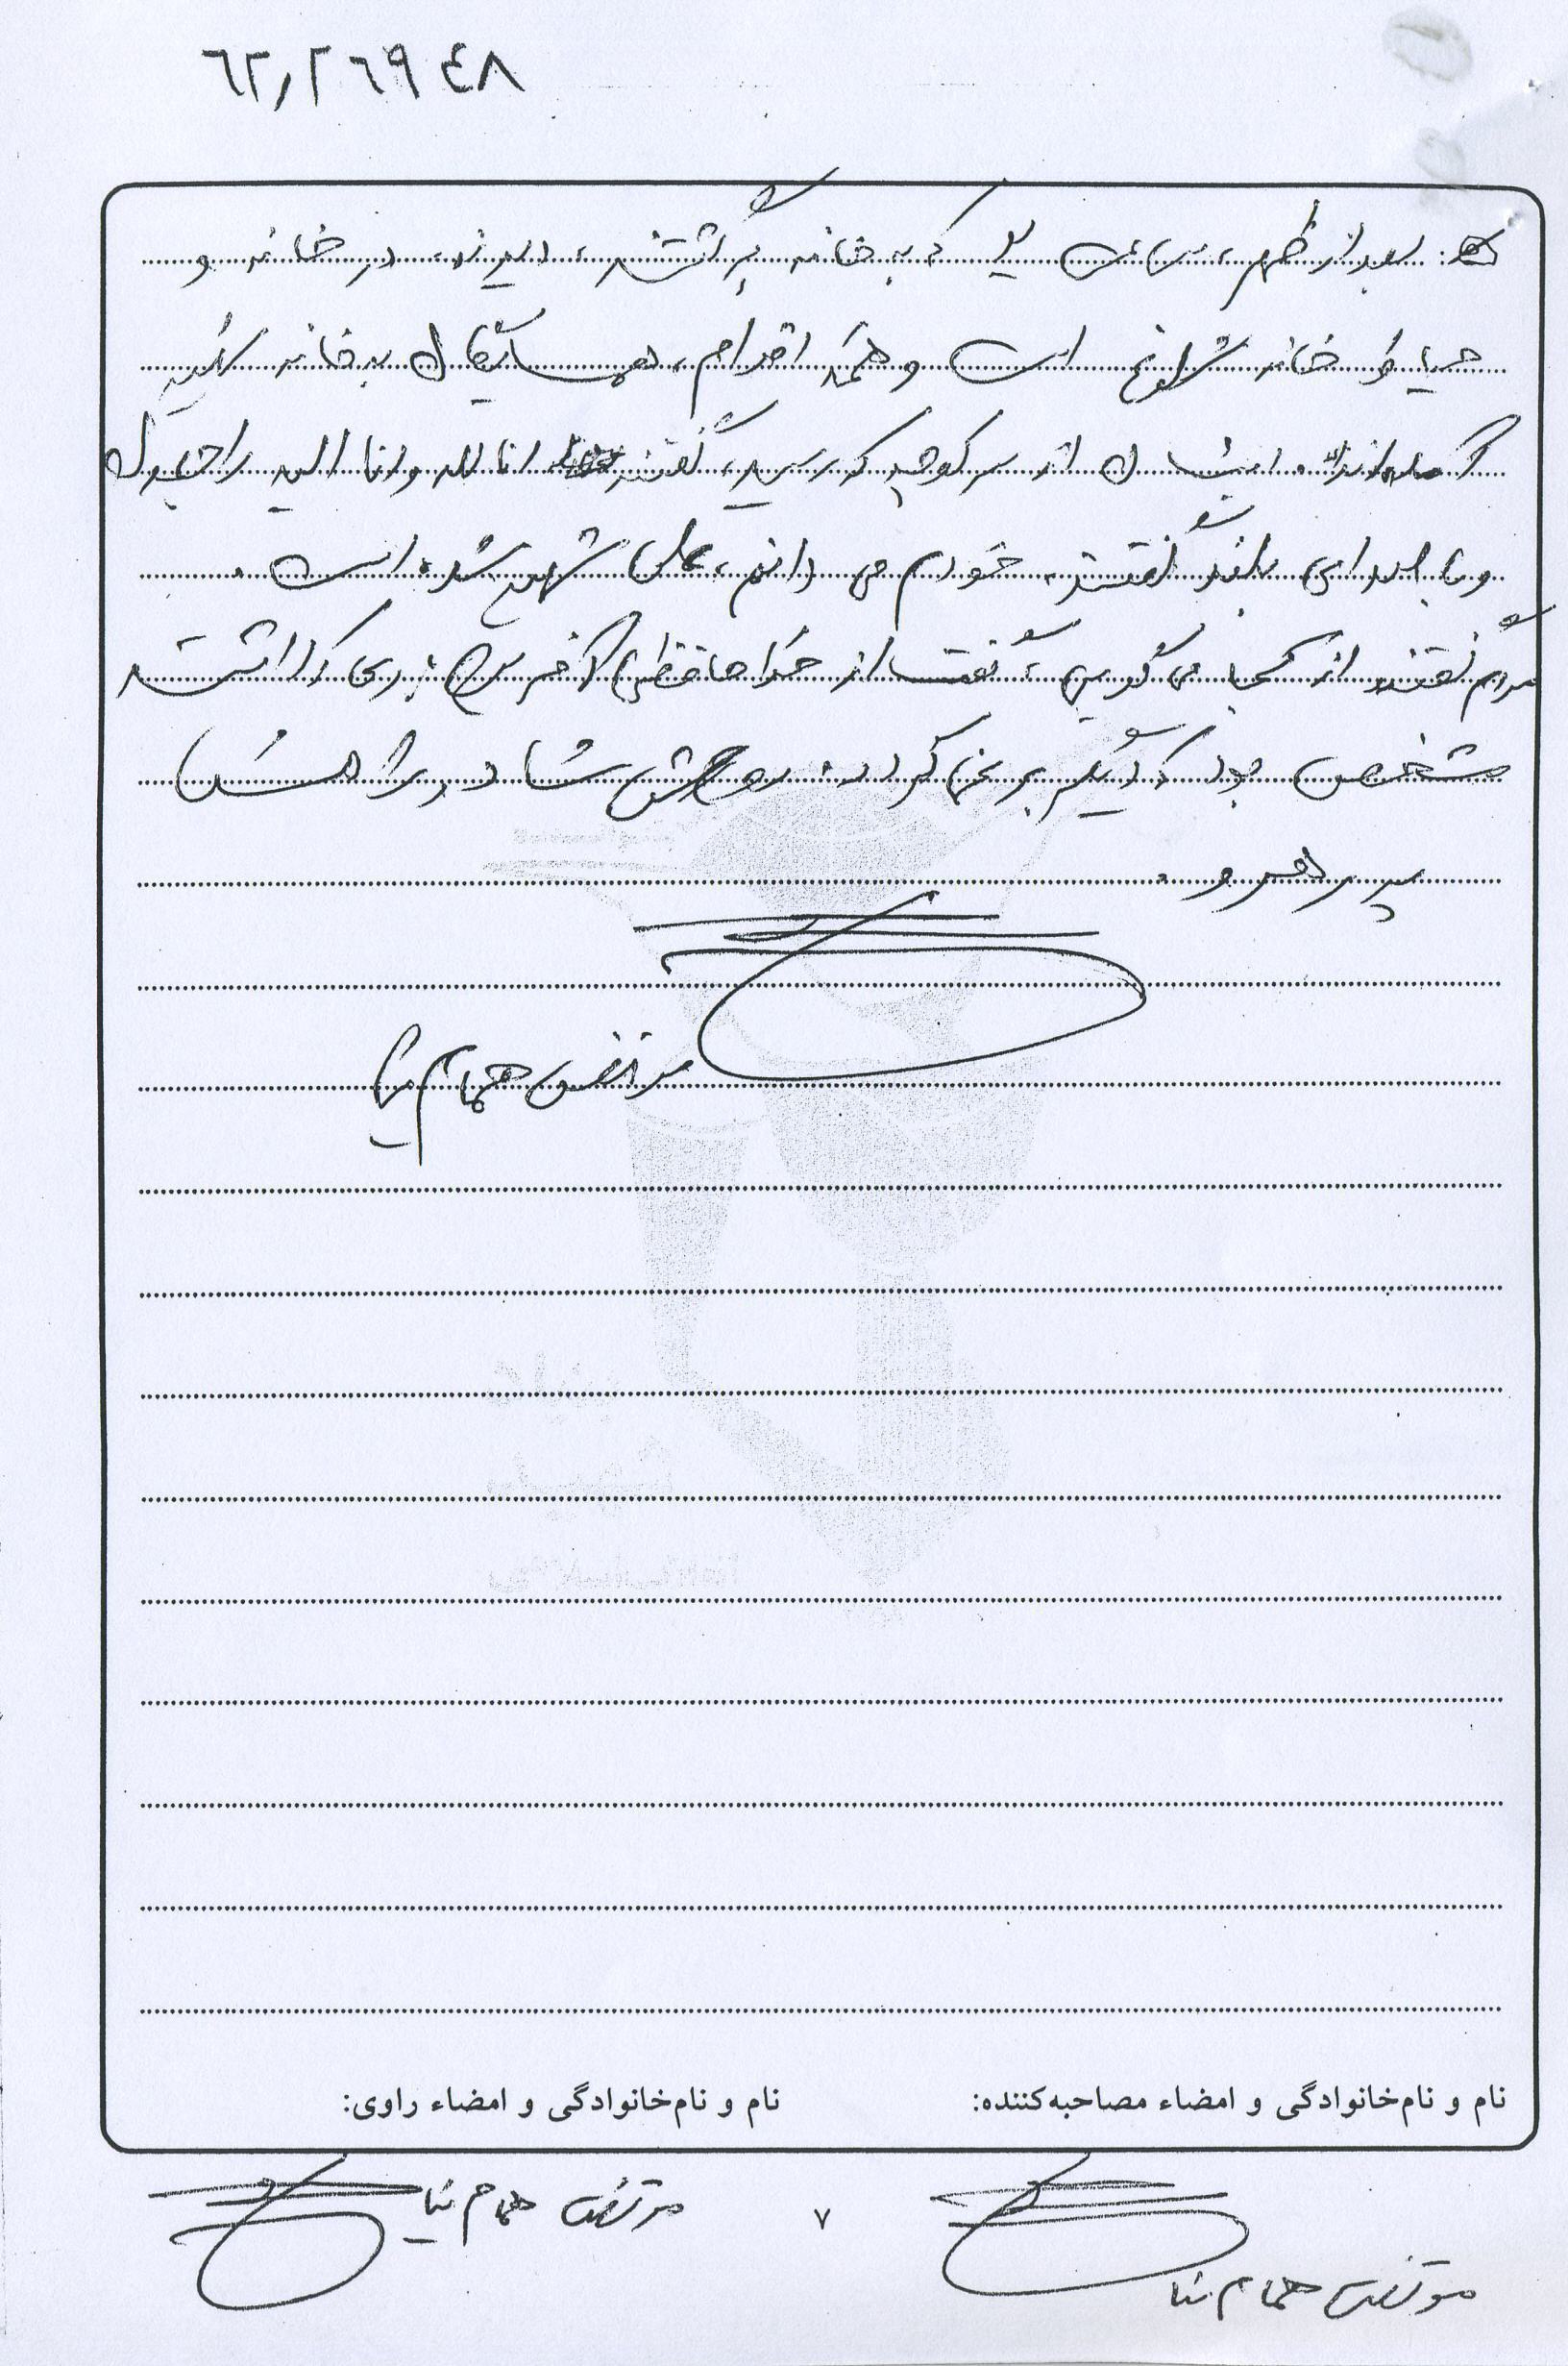 ٦٢٫٢٦٩٤٨
بعد از ظهر، ساعت که به خانه برگشتند، دیدند، در خانه و
حیاط خانه شلوغ است و همه اقدام، همسایگان به خانه
آمده‌اند. ایشان از سر کوچه که رسید، گفتند انا لله و انا الیه راجعون
و با صدای بلند گفتند، خودم می دانم، علی شهید شده است.
مردم گفتند از کجا می گویی، گفت از خداحافظی آخر که داشت
مشخص بود که دیگر بر نمی‌گردد. روحش شاد و راهش
پر رهرو.
مرتضی همام نیا
نام و نام‌خانوادگی و امضاء مصاحبه‌کننده:
نام و نام‌خانوادگی و امضاء راوی:
مرتضی همام نیا
۷
مرتضی همام نیا